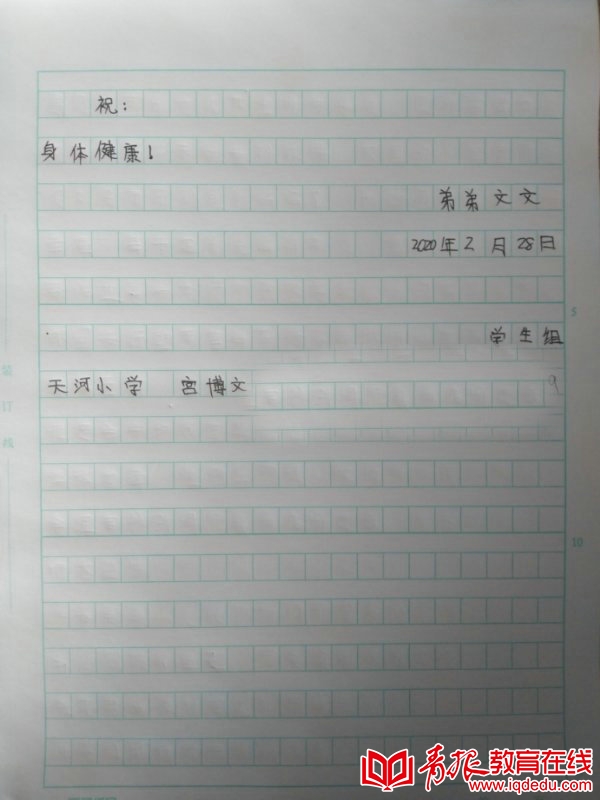 祝:
身体健康!
弟弟文文
2020年2月28日
5
学生组
天河小学 宫博文
9
装
订
线
10
青报教育在线
www.iqdedu.com